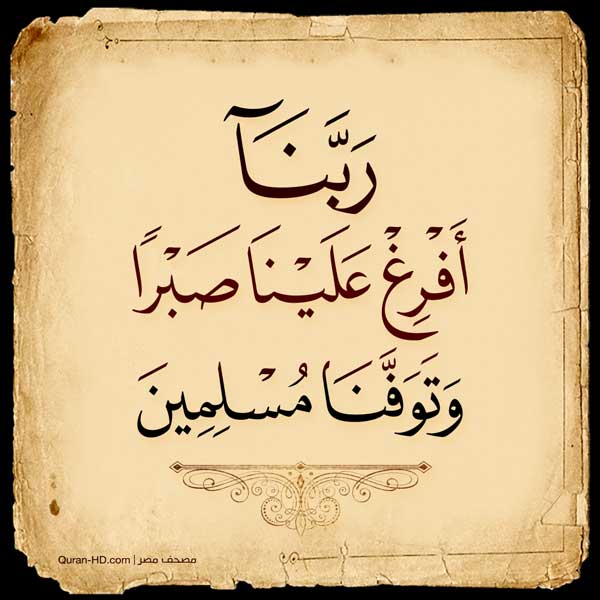 رَبَّنَآ
أَفْرِغْ عَلَيْنَا صَبْرًا
وَتَوَفَّنَا مُسْلِمِينَ
Quran-HD.com | مصحف مصر